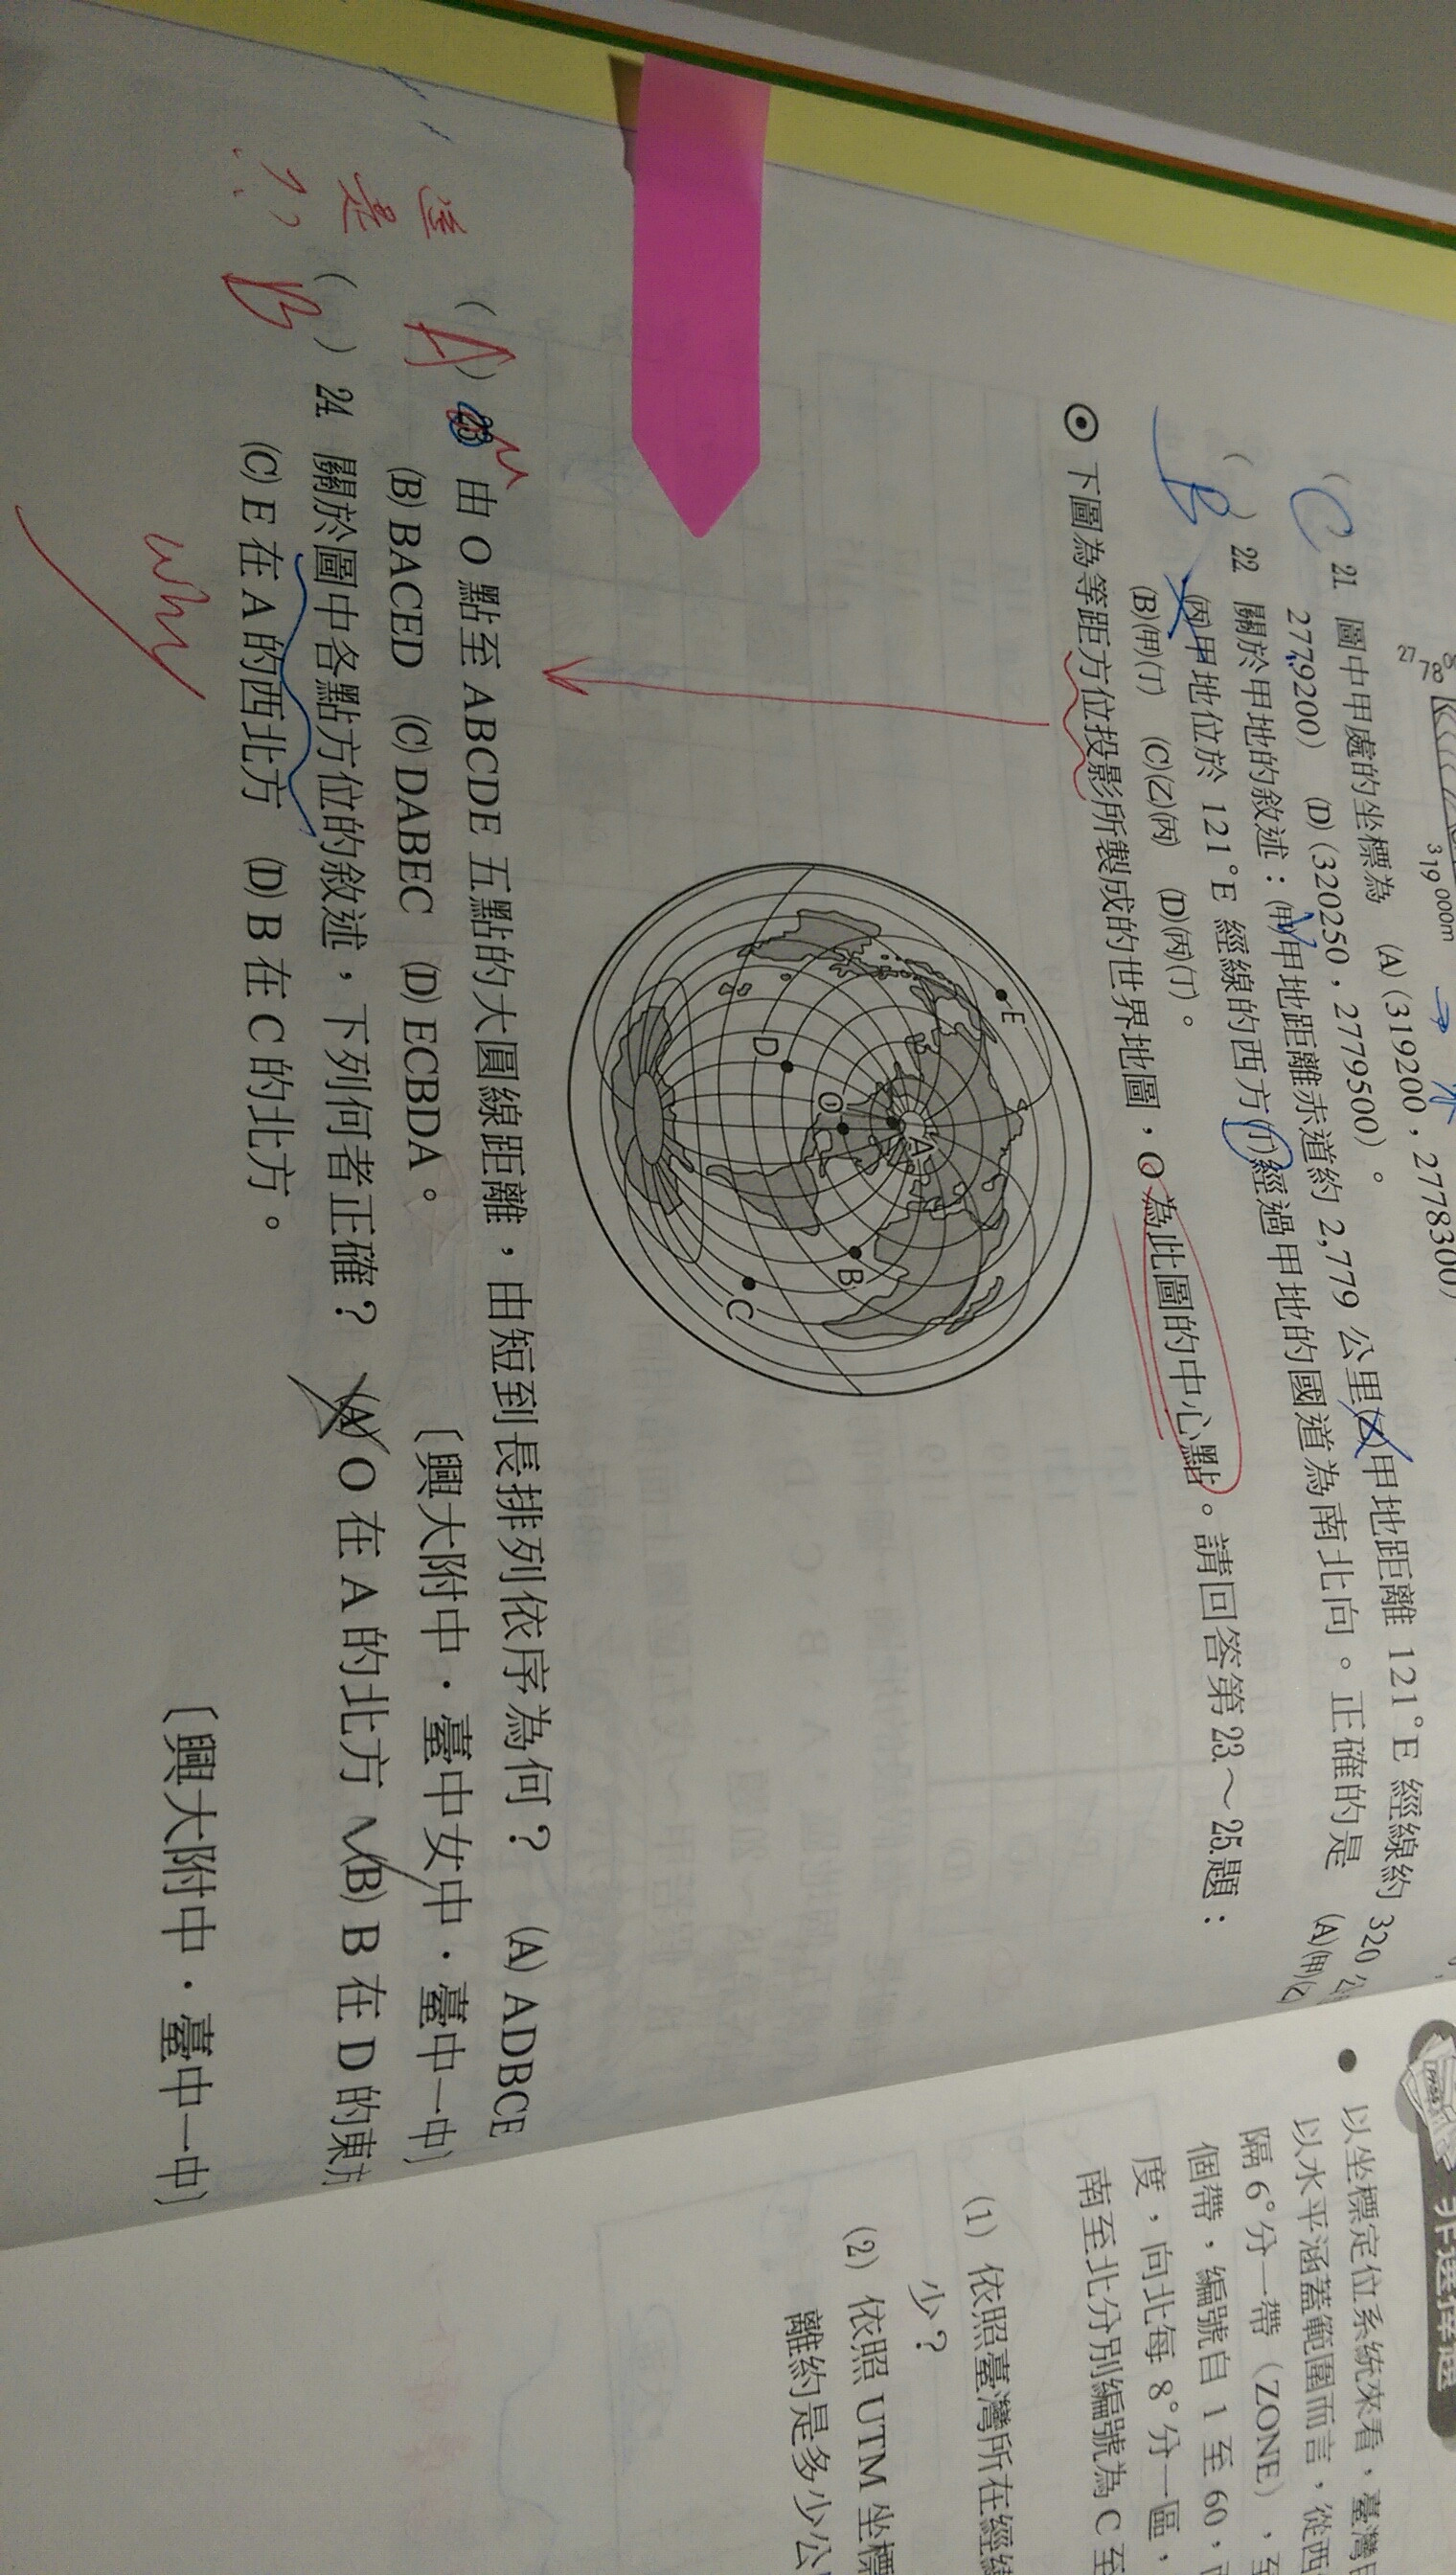 27 78
319 0000m
( C 21. 圖中甲處的坐標為 (A) (319200,2778300)
2779200) (D) (320250,2779500)。
( B ) 22. 關於甲地的敘述：(甲)甲地距離赤道約 2,779 公里(乙)甲地距離 121°E 經線約 320 公
(丙)甲地位於 121°E 經線的西方(丁)經過甲地的國道為南北向。正確的是 (A)(甲)(乙)
(B)(甲)(丁) (C)(乙)(丙) (D)(丙)(丁)。
⊙ 下圖為等距方位投影所製成的世界地圖，O 為此圖的中心點。請回答第 23.～25.題：
E
D
O
A
B
C
( A ) 23. 由 O 點至 ABCDE 五點的大圓線距離，由短到長排列依序為何？ (A) ADBCE
(B) BACED (C) DABEC (D) ECBDA。
〔興大附中．臺中女中．臺中一中〕
( B ) 24. 關於圖中各點方位的敘述，下列何者正確？ (A) O 在 A 的北方 (B) B 在 D 的東方
(C) E 在 A 的西北方 (D) B 在 C 的北方。
〔興大附中．臺中一中〕
why
● 以坐標定位系統來看，臺灣
以水平涵蓋範圍而言，從西
隔 6°分一帶（ZONE），至
個帶，編號自 1 至 60，
度，向北每 8°分一區，
南至北分別編號為 C 至
(1) 依照臺灣所在經
少？
(2) 依照 UTM 坐標
離約是多少公